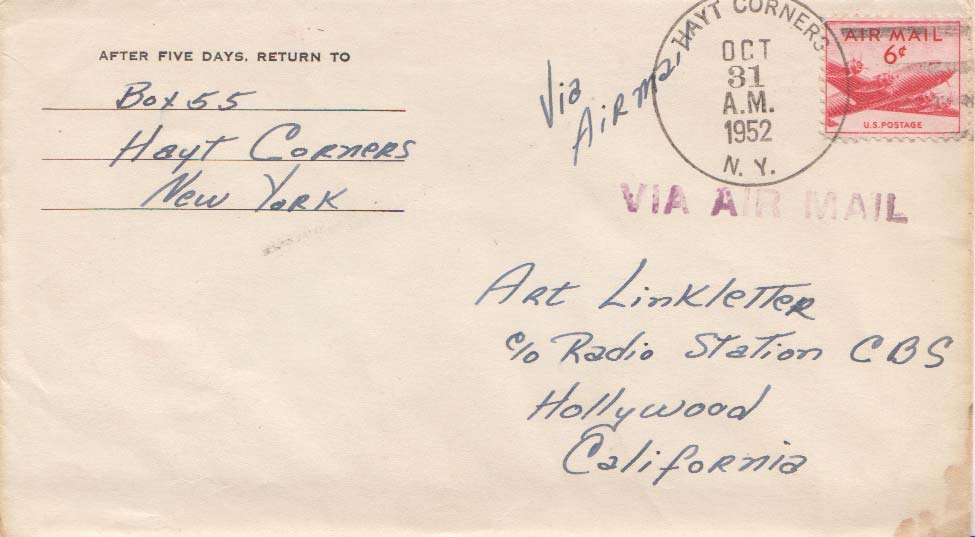 AFTER FIVE DAYS, RETURN TO
Box 55
Hayt Corners
New York
Via
Airmail
HAYT CORNERS
OCT
31
A.M.
1952
N. Y.
AIR MAIL
6¢
U.S. POSTAGE
VIA AIR MAIL
Art Linkletter
c/o Radio Station CBS
Hollywood
California